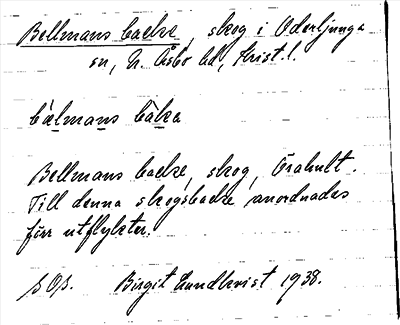 Bellmans backe, skog i Oderljunga
sn, N. Åsbo hd, Krist. l.
bælmans bàka
Bellmans backe, skog, Örahult.
Till denna skogsbacke anordnades
förr utflykter.
Birgit Lundkvist 1938.